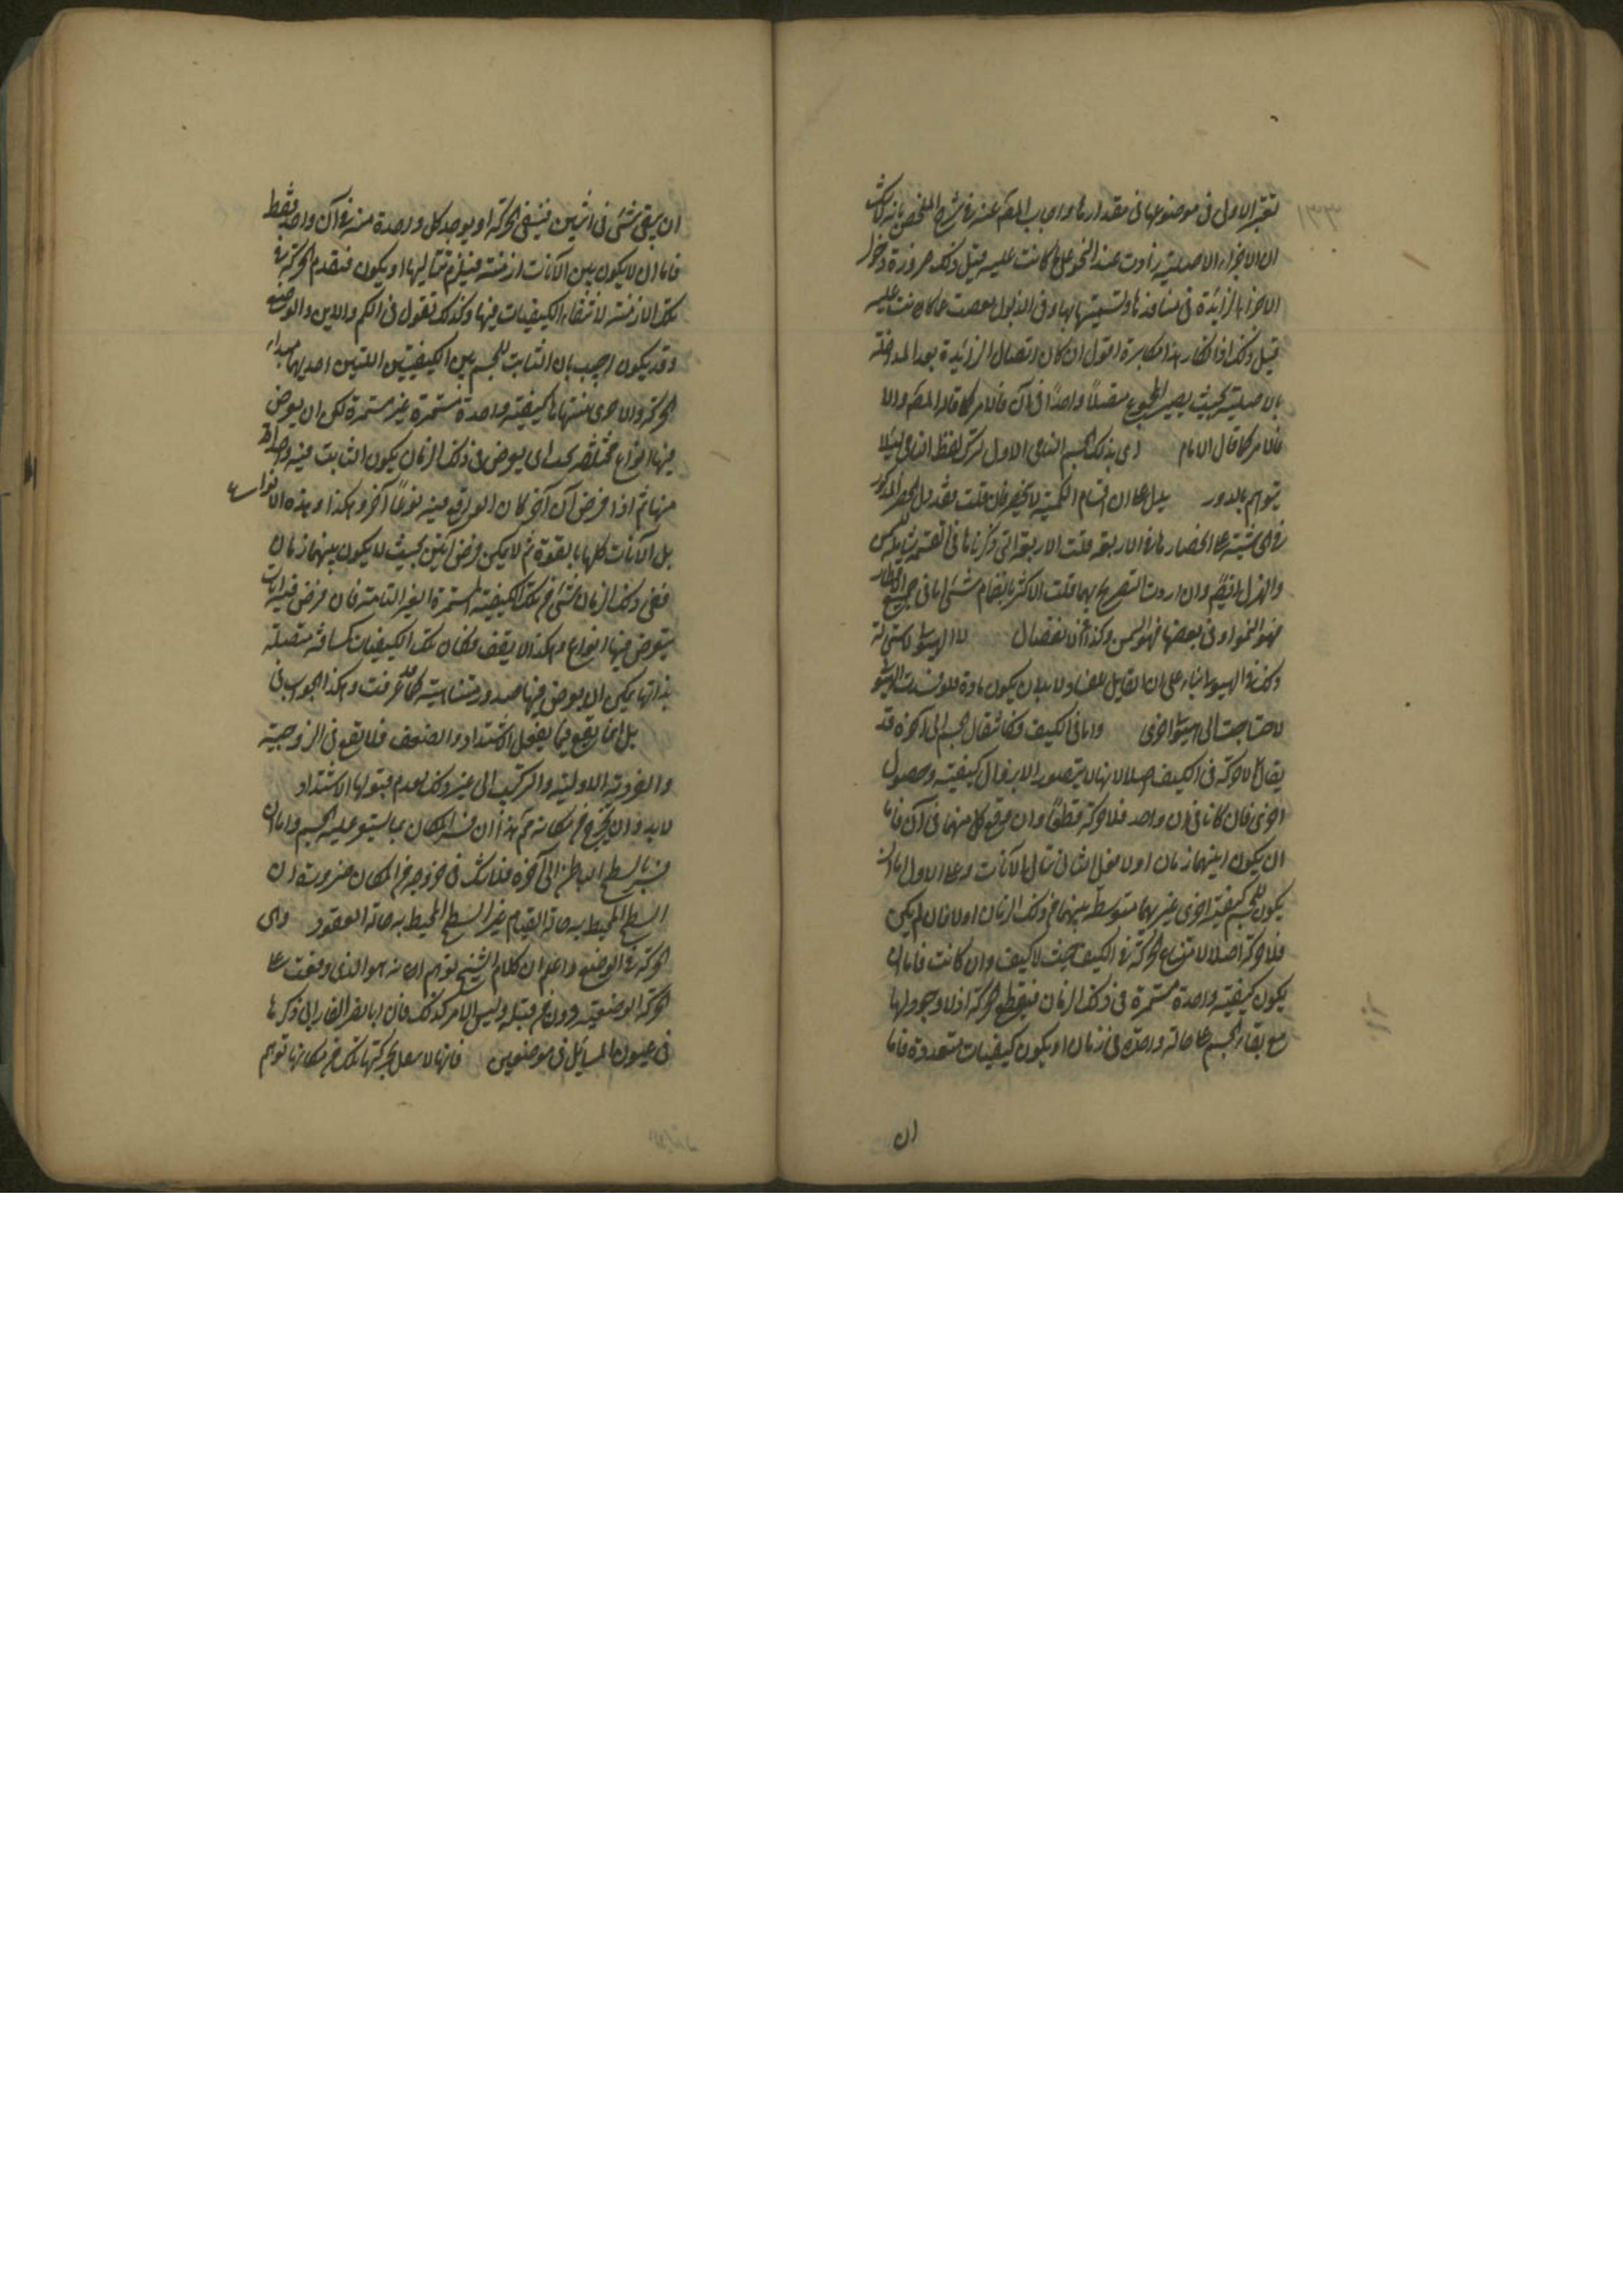 تغير الاولى فى موضوعها فى مقدارها واجاب المصم عنه فى شرح الملخص بانه لا شك
ان الاجزاء الاصلية زادت عند النمو على ما كانت عليه قبل ذلك ضرورة دخول
الاجزاء الزائدة فى منافذها وتشبيهها بها وفى الذبول نقصت عما كانت عليه
قبل ذلك فانكار هذا مكابرة اقول ان كان اتصال الزائدة بعد المداخلة
بالاصلية بحيث يصير المجموع متصلاً واحداً فى آن فالامر كما قال المصم والا
فالامر كما قال الامام اى بذلك الجسم النامى الاول ترك لفظ النامى لئلا
يتوهم بالدور يدل على ان اقسام الكمية لا ينحصر فان قلت فقد دل الحصر المذكور
فى الحاشية على انحصارها فى الاربعة قلت الاربعة التى ذكرناها فى القسمة شاملة للسمن
والهزال ايضم وان اردت التصريح بهما قلت الاكثر بانضمام شئ اما فى جميع الاقطار
فهو النمو او فى بعضها فهو السمن وكذا فى الانفصال لا الهيولى لاستحالة
ذلك فى الهيولى بناء على ان القابل للفساد لا بد ان يكون له مادة فلو فسدت الهيولى
لاحتاجت الى هيولى اخرى واما فى الكيف فكانتقال الجسم الى آخره قد
يقال لا حركة فى الكيف اصلا لانها لا يتصور الا بزوال كيفية وحصول
اخرى فان كانا فى آن واحد فلا حركة قطعاً وان وقع كل منهما فى آن فاما
ان يكون بينهما زمان اولا فعلى الثانى تتالى الآنات وعلى الاول اما ان
يكون للجسم كيفية اخرى غيرهما متوسطة بينهما فى ذلك الزمان اولا فان لم يكن
فلا حركة اصلا لامتناع الحركة فى الكيف حيث لا كيف وان كانت فاما ان
يكون كيفية واحدة مستمرة فى ذلك الزمان فينقطع الحركة اذ لا وجود لها
مع بقاء الجسم على حالة واحدة فى زمان او يكون كيفيات متعددة فاما
ان
ان يبقى شئ فى اثنين فينتفى الحركة او يوجد كل واحدة منه فى آن واحد فقط
فاما ان لا يكون بين الآنات ازمنة فيلزم تتاليها او يكون فينعدم الحركة فى
تلك الازمنة لانتفاء الكيفيات فيها وكذلك نقول فى الكم والاين والوضع
وقد يكون اجيب بان الثابت للجسم بين الكيفيتين اللتين احديهما مبدا
الحركة والاخرى منتهاها كيفية واحدة مستمرة غير مستمرة لكن ان يعرض
فيها انواع مختلفة بحسب اى يعرض فى ذلك الزمان يكون الثابت فيه واحدة
منها ثم اذا فرض آن آخر كان الواقع فيه نوعاً آخر وهكذا وهذه الانواع
بل الآنات كلها بالقوة ثم لا يمكن فرض آنين بحيث لا يكون بينهما زمان
ففى ذلك الزمان شئ من تلك الكيفية المستمرة الغير الثابتة فان فرض فيه آنات
يتعرض فيها انواع وهكذا لا يقف فكان تلك الكيفيات كمسافة متصلة
بذاتها يمكن ان يعرض فيها حدود متناهية كما قد عرفت وهكذا الجواب فى
بل انما يقع فيما يقبل الاشتداد والضعف فلا يقع فى الزوجية
والفردية الاولية والتركيب الى غير ذلك بعدم قبولها الاشتداد
لا بد وان يخرج من مكانه ثم هذا ان فسر المكان بما يستو عليه الجسم واما ان
فسر بالسطح الباطن الى آخره فلا شك فى خروجه من المكان ضرورة ان
السطح المحيط به حالة القيام غير السطح المحيط به حالة القعود وهى
الحركة فى الوضع واعلم ان كلام الشيخ يوهم انه هو الذى وقف على
الحركة الوضعية دون من قبله وليس الامر كذلك فان ابا نصر الفارابى ذكرها
فى عيون المسائل فى موضعين فانها لا تفعل بحركتها تلك من مكانها توهم